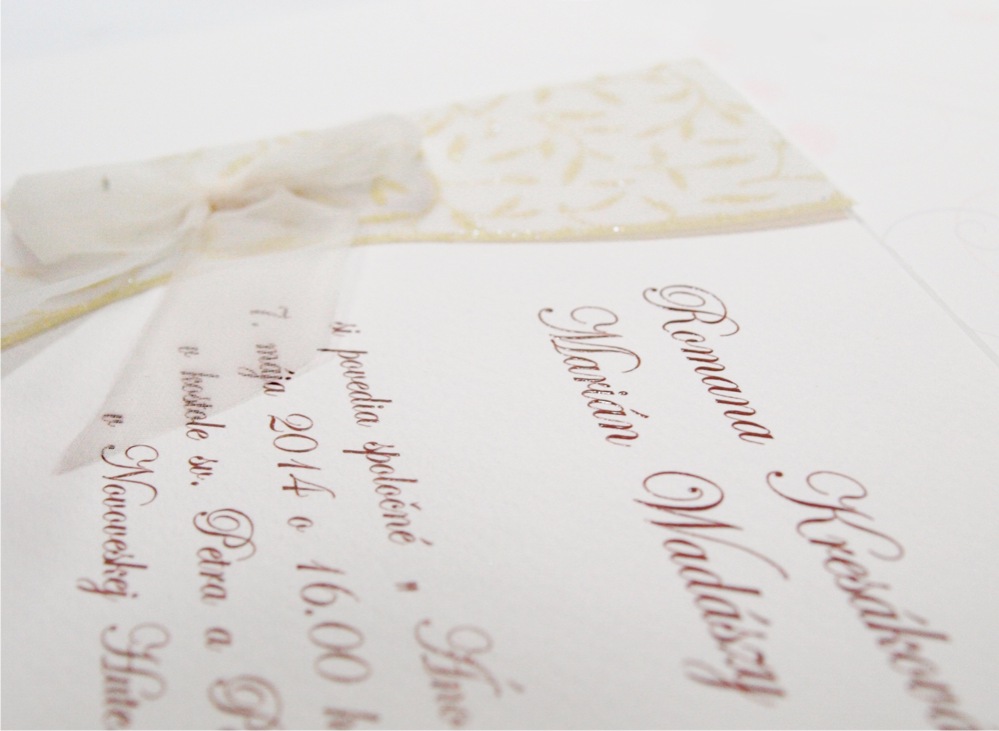 Romana Krosáková
Marián Wadászy
si povedia spoločné "Áno
7. mája 2014 o 16.00 h
v kostole sv. Petra a P
v Novoveskej Hute